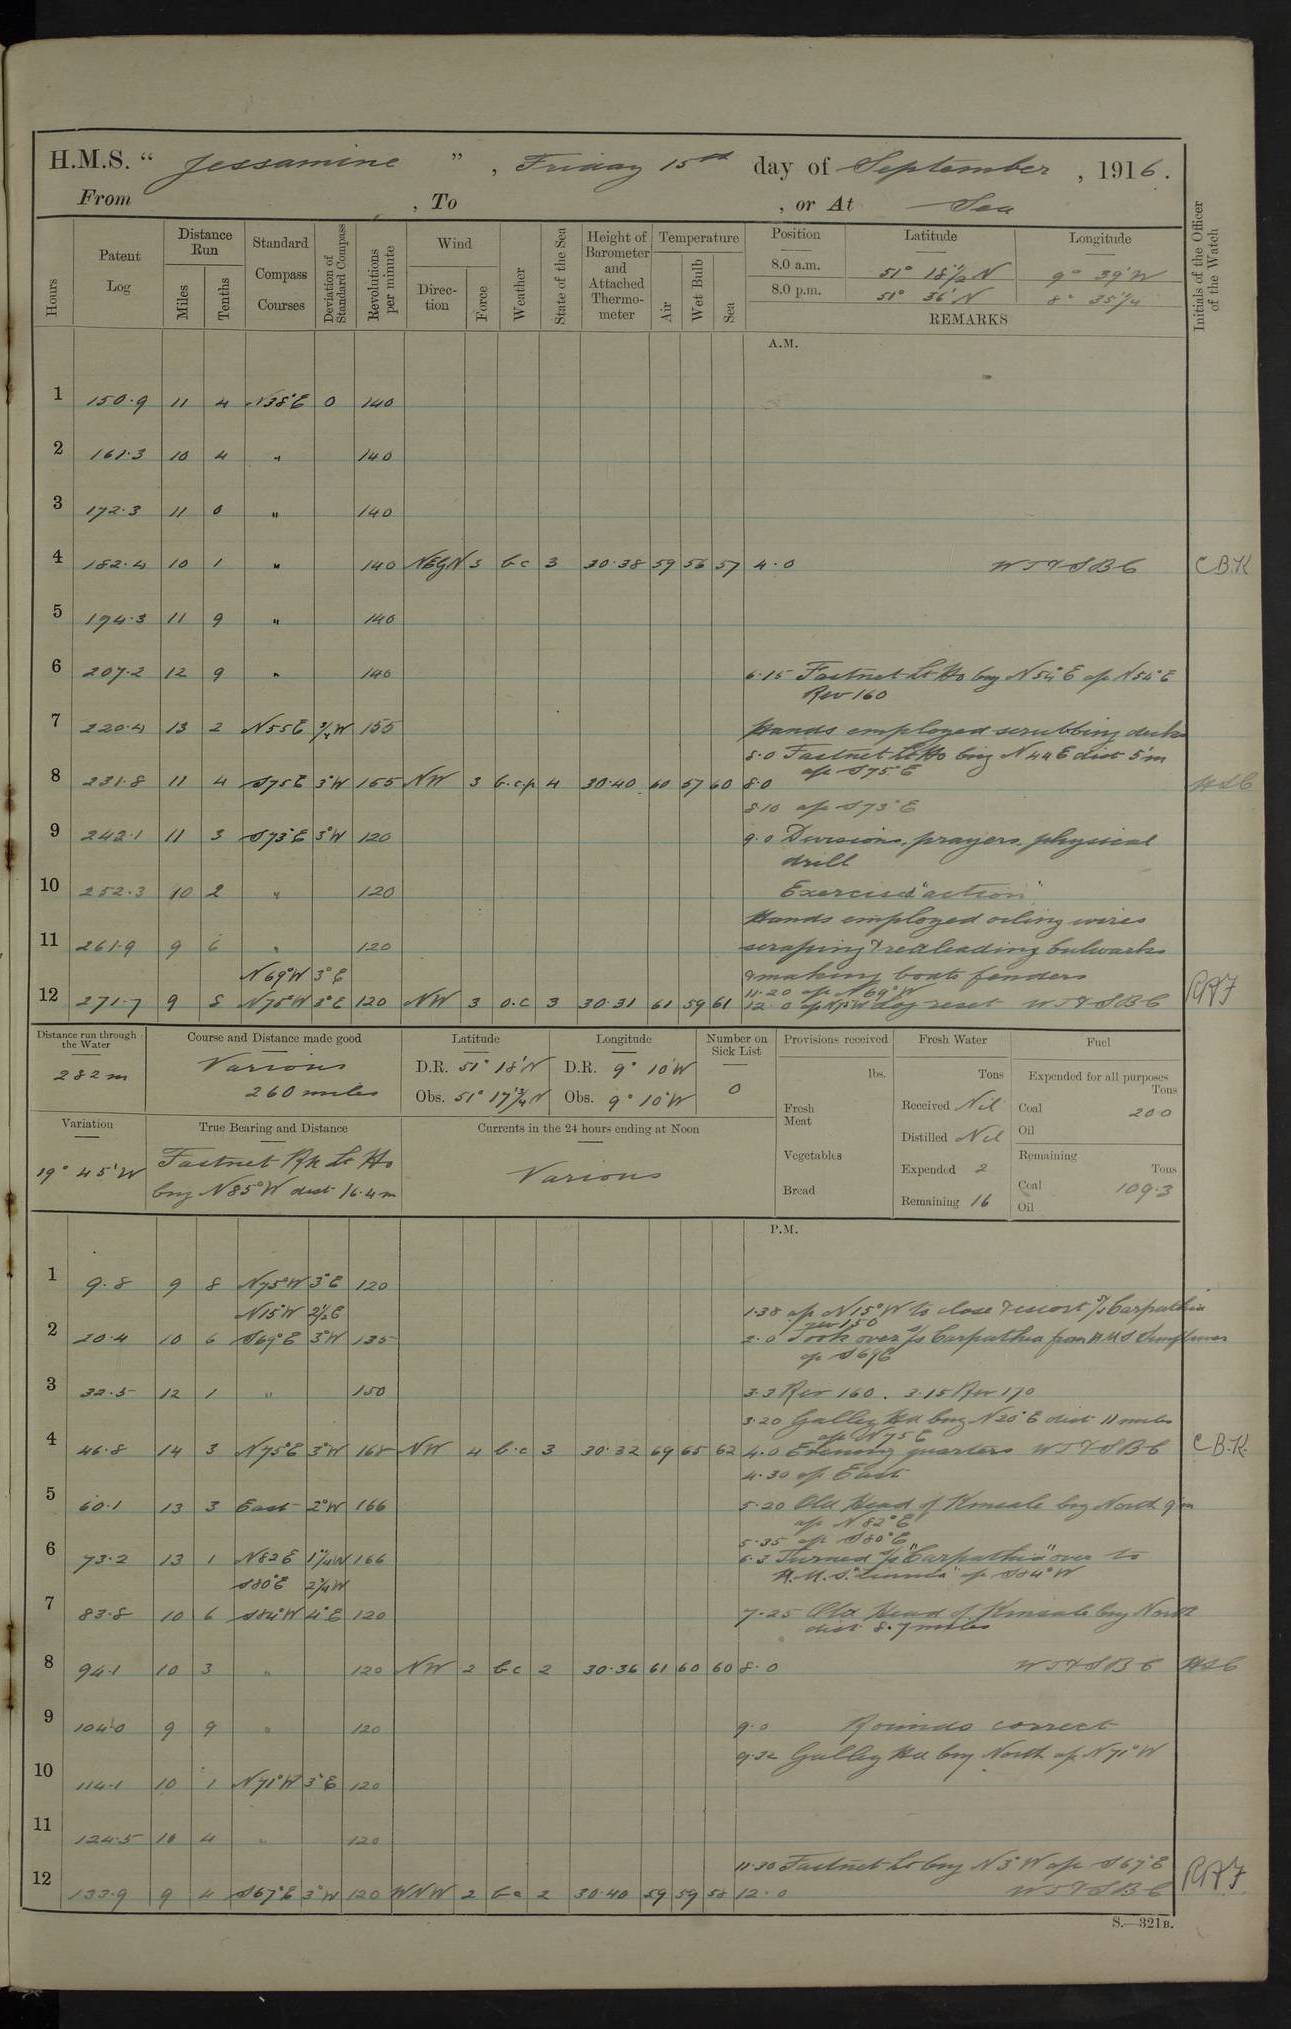 H.M.S. “ Jessamine ” , Friday 15th day of September , 1916.
From , To , or At Sea
Hours
Patent Log
Distance Run
Miles
Tenths
Standard Compass Courses
Deviation of Standard Compass
Revolutions per minute
Wind
Direction
Force
Weather
State of the Sea
Height of Barometer and Attached Thermometer
Temperature
Air
Wet Bulb
Sea
Position Latitude Longitude
8.0 a.m. 51° 18½' N 9° 39' W
8.0 p.m. 51° 36' N 8° 35¼
REMARKS
Initials of the Officer of the Watch
A.M.
1 150.9 11 4 N38°E 0 140
2 161.3 10 4 " 140
3 172.3 11 0 " 140
4 182.4 10 1 " 140 NEbyN 3 b.c 3 30.38 59 56 57 4.0 WT&SBC C.B.K
5 194.3 11 9 " 140
6 207.2 12 9 " 140 6.15 Fastnet Lt Ho brg N54°E a/c N55°E
Rev 160
7 220.4 13 2 N55E ¾W 155 Hands employed scrubbing decks
8.0 Fastnet Lt Ho brg N44E dist 5'm
a/c S75°E
8 231.8 11 4 S75E 3°W 155 NW 3 b.c.p 4 30.40 60 57 60 8.0
8.10 a/c S73°E
9 242.1 11 3 S73°E 3°W 120 9.0 Divisions, prayers, physical
drill
10 252.3 10 2 " 120 Exercised "action"
Hands employed oiling wires
11 261.9 9 6 " 120 scraping & redleading bulwarks
N69°W 3°E & making boats fenders
11.20 a/c N69°W
12 271.7 9 8 N75°W 3°E 120 NW 3 o.c 3 30.31 61 59 61 12.0 a/c N75W Log reset WT&SBC RAF
Distance run through the Water
282m
Course and Distance made good
Various
260 miles
Latitude
D.R. 51° 18' N
Obs. 51° 17¾' N
Longitude
D.R. 9° 10' W
Obs. 9° 10' W
Number on Sick List
0
Provisions received
lbs.
Fresh Meat
Vegetables
Bread
Fresh Water
Tons
Received Nil
Distilled Nil
Expended 2
Remaining 16
Fuel
Expended for all purposes
Tons
Coal 20.0
Oil
Remaining
Tons
Coal 109.3
Oil
Variation
19° 45' W
True Bearing and Distance
Fastnet Rk Lt Ho
brg N85°W dist 16.4m
Currents in the 24 hours ending at Noon
Various
P.M.
1 9.8 9 8 N75°W 3°E 120
N15W 2½E 1.38 a/c N15°W to close & escort S/S Carpathia
rev 150
2 20.4 10 6 S69°E 3°W 135 2.0 Took over S/S Carpathia from HMS Sunflower
a/c S69E
3 32.5 12 1 " 150 3.3 Rev 160. 3.15 Rev 170
3.20 Galley Hd brg N20°E dist 11 miles
a/c N75E
4 46.8 14 3 N75°E 3°W 168 NW 4 b.c 3 30.32 69 65 62 4.0 Evening quarters WT&SBC C.B.K.
4.30 a/c East
5 60.1 13 3 East 2°W 166 5.20 Old Head of Kinsale brg North 9'm
a/c N82°E
5.35 a/c S80°E
6 73.2 13 1 N82E 1¼W 166 6.3 Turned S/S "Carpathia" over to
S80°E 2¾W H.M.S. a/c S84°W
7 83.8 10 6 S84°W 4°E 120 7.25 Old Head of Kinsale brg North
dist 8.7 miles
8 94.1 10 3 " 120 NW 2 b.c 2 30.36 61 60 60 8.0 WT&SBC
9 104.0 9 9 " 120 9.0 Rounds correct
9.32 Galley Hd brg North a/c N71°W
10 114.1 10 1 N71°W 3°E 120
11 124.5 10 4 " 120
11.30 Fastnet Lt brg N3°W a/c S67°E
12 133.9 9 4 S67°E 3°W 120 WNW 2 b.c 2 30.40 59 59 58 12.0 WT&SBC RAF
S.—321B.